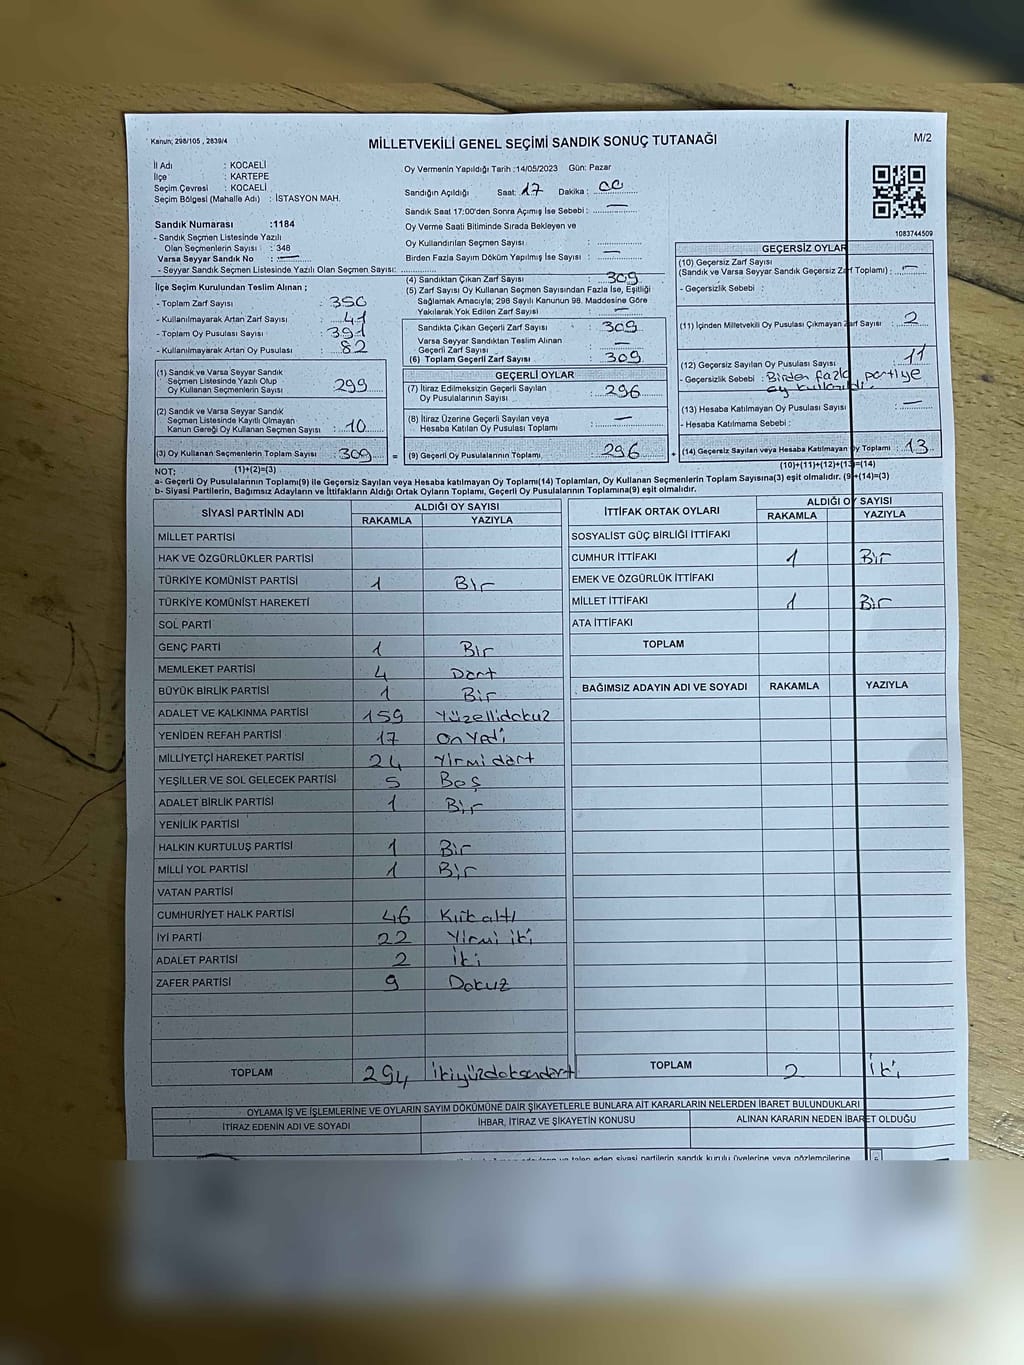 Kanun; 298/105 , 2839/4
MİLLETVEKİLİ GENEL SEÇİMİ SANDIK SONUÇ TUTANAĞI
M/2
İl Adı : KOCAELİ
İlçe : KARTEPE
Seçim Çevresi : KOCAELİ
Seçim Bölgesi (Mahalle Adı) : İSTASYON MAH.
Sandık Numarası :1184
- Sandık Seçmen Listesinde Yazılı
Olan Seçmenlerin Sayısı : 348
Varsa Seyyar Sandık No : —
- Seyyar Sandık Seçmen Listesinde Yazılı Olan Seçmen Sayısı: ..............
Oy Vermenin Yapıldığı Tarih :14/05/2023 Gün: Pazar
Sandığın Açıldığı Saat: 17 Dakika : 00
Sandık Saat 17:00'den Sonra Açımış İse Sebebi : —
Oy Verme Saati Bitiminde Sırada Bekleyen ve
Oy Kullandırılan Seçmen Sayısı : ..............
Birden Fazla Sayım Döküm Yapılmış İse Sayısı : —
1083744509
İlçe Seçim Kurulundan Teslim Alınan ;
- Toplam Zarf Sayısı : 350
- Kullanılmayarak Artan Zarf Sayısı : 41
- Toplam Oy Pusulası Sayısı : 391
- Kullanılmayarak Artan Oy Pusulası : 82
(1) Sandık ve Varsa Seyyar Sandık
Seçmen Listesinde Yazılı Olup
Oy Kullanan Seçmenlerin Sayısı : 299
(2) Sandık ve Varsa Seyyar Sandık
Seçmen Listesinde Kayıtlı Olmayan
Kanun Gereği Oy Kullanan Seçmen Sayısı : 10
(3) Oy Kullanan Seçmenlerin Toplam Sayısı : 309
(1)+(2)=(3)
(4) Sandıktan Çıkan Zarf Sayısı : 309
(5) Zarf Sayısı Oy Kullanan Seçmen Sayısından Fazla İse, Eşitliği
Sağlamak Amacıyla; 298 Sayılı Kanunun 98. Maddesine Göre
Yakılarak Yok Edilen Zarf Sayısı : —
Sandıkta Çıkan Geçerli Zarf Sayısı : 309
Varsa Seyyar Sandıktan Teslim Alınan
Geçerli Zarf Sayısı : —
(6) Toplam Geçerli Zarf Sayısı : 309
GEÇERLİ OYLAR
(7) İtiraz Edilmeksizin Geçerli Sayılan
Oy Pusulalarının Sayısı : 296
(8) İtiraz Üzerine Geçerli Sayılan veya
Hesaba Katılan Oy Pusulası Toplamı : —
= (9) Geçerli Oy Pusulalarının Toplamı : 296
GEÇERSİZ OYLAR
(10) Geçersiz Zarf Sayısı
(Sandık ve Varsa Seyyar Sandık Geçersiz Zarf Toplamı) : —
- Geçersizlik Sebebi :
(11) İçinden Milletvekili Oy Pusulası Çıkmayan Zarf Sayısı : 2
(12) Geçersiz Sayılan Oy Pusulası Sayısı : 11
- Geçersizlik Sebebi : Birden fazla partiye
oy kullanıldı.
(13) Hesaba Katılmayan Oy Pusulası Sayısı : —
- Hesaba Katılmama Sebebi :
+ (14) Geçersiz Sayılan veya Hesaba Katılmayan Oy Toplamı : 13
(10)+(11)+(12)+(13)=(14)
NOT;
a- Geçerli Oy Pusulalarının Toplamı(9) ile Geçersiz Sayılan veya Hesaba Katılmayan Oy Toplamı(14) Toplamları, Oy Kullanan Seçmenlerin Toplam Sayısına(3) eşit olmalıdır. (9)+(14)=(3)
b- Siyasi Partilerin, Bağımsız Adayların ve İttifakların Aldığı Ortak Oyların Toplamı, Geçerli Oy Pusulalarının Toplamına(9) eşit olmalıdır.
SİYASİ PARTİNİN ADI ALDIĞI OY SAYISI
RAKAMLA YAZIYLA
MİLLET PARTİSİ
HAK VE ÖZGÜRLÜKLER PARTİSİ
TÜRKİYE KOMÜNİST PARTİSİ 1 Bir
TÜRKİYE KOMÜNİST HAREKETİ
SOL PARTİ
GENÇ PARTİ 1 Bir
MEMLEKET PARTİSİ 4 Dört
BÜYÜK BİRLİK PARTİSİ 1 Bir
ADALET VE KALKINMA PARTİSİ 159 Yüzellidokuz
YENİDEN REFAH PARTİSİ 17 Onyedi
MİLLİYETÇİ HAREKET PARTİSİ 24 Yirmidört
YEŞİLLER VE SOL GELECEK PARTİSİ 5 Beş
ADALET BİRLİK PARTİSİ 1 Bir
YENİLİK PARTİSİ
HALKIN KURTULUŞ PARTİSİ 1 Bir
MİLLİ YOL PARTİSİ 1 Bir
VATAN PARTİSİ
CUMHURİYET HALK PARTİSİ 46 Kırkaltı
İYİ PARTİ 22 Yirmi iki
ADALET PARTİSİ 2 İki
ZAFER PARTİSİ 9 Dokuz
TOPLAM 294 İkiyüzdoksandört
İTTİFAK ORTAK OYLARI ALDIĞI OY SAYISI
RAKAMLA YAZIYLA
SOSYALİST GÜÇ BİRLİĞİ İTTİFAKI
CUMHUR İTTİFAKI 1 Bir
EMEK VE ÖZGÜRLÜK İTTİFAKI
MİLLET İTTİFAKI 1 Bir
ATA İTTİFAKI
TOPLAM
BAĞIMSIZ ADAYIN ADI VE SOYADI RAKAMLA YAZIYLA
TOPLAM 2 İki
OYLAMA İŞ VE İŞLEMLERİNE VE OYLARIN SAYIM DÖKÜMÜNE DAİR ŞİKAYETLERLE BUNLARA AİT KARARLARIN NELERDEN İBARET BULUNDUKLARI
İTİRAZ EDENİN ADI VE SOYADI İHBAR, İTİRAZ VE ŞİKAYETİN KONUSU ALINAN KARARIN NEDEN İBARET OLDUĞU
talep eden siyasi partilerin sandık kurulu üyelerine veya gözlemcilerine